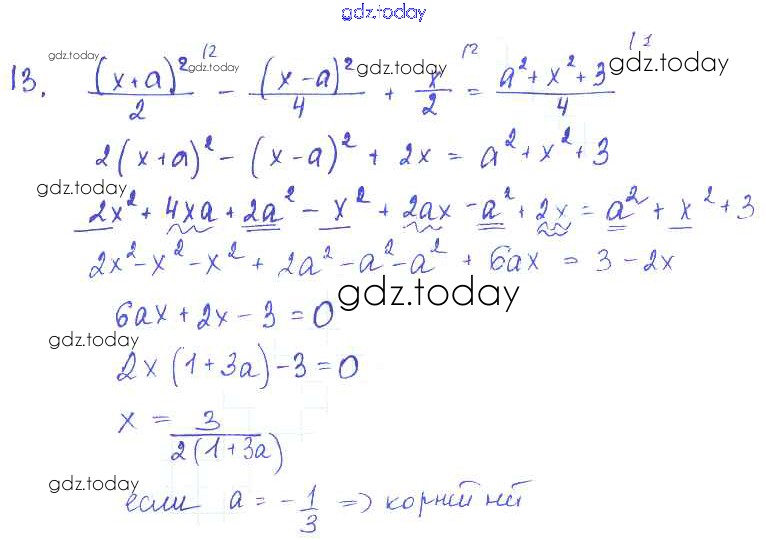 gdz.today
13. (x+a)²/2 |2 gdz.today - (x-a)²/4 gdz.today + x/2 |2 = (a²+x²+3)/4 |1 gdz.today
gdz.today
2(x+a)² - (x-a)² + 2x = a²+x²+3
gdz.today
2x² + 4xa + 2a² - x² + 2ax - a² + 2x = a² + x² + 3
2x² - x² - x² + 2a² - a² - a² + 6ax = 3 - 2x
gdz.today
6ax + 2x - 3 = 0
gdz.today
2x(1+3a) - 3 = 0
x = 3/(2(1+3a))
gdz.today
если a = -1/3 => корней нет